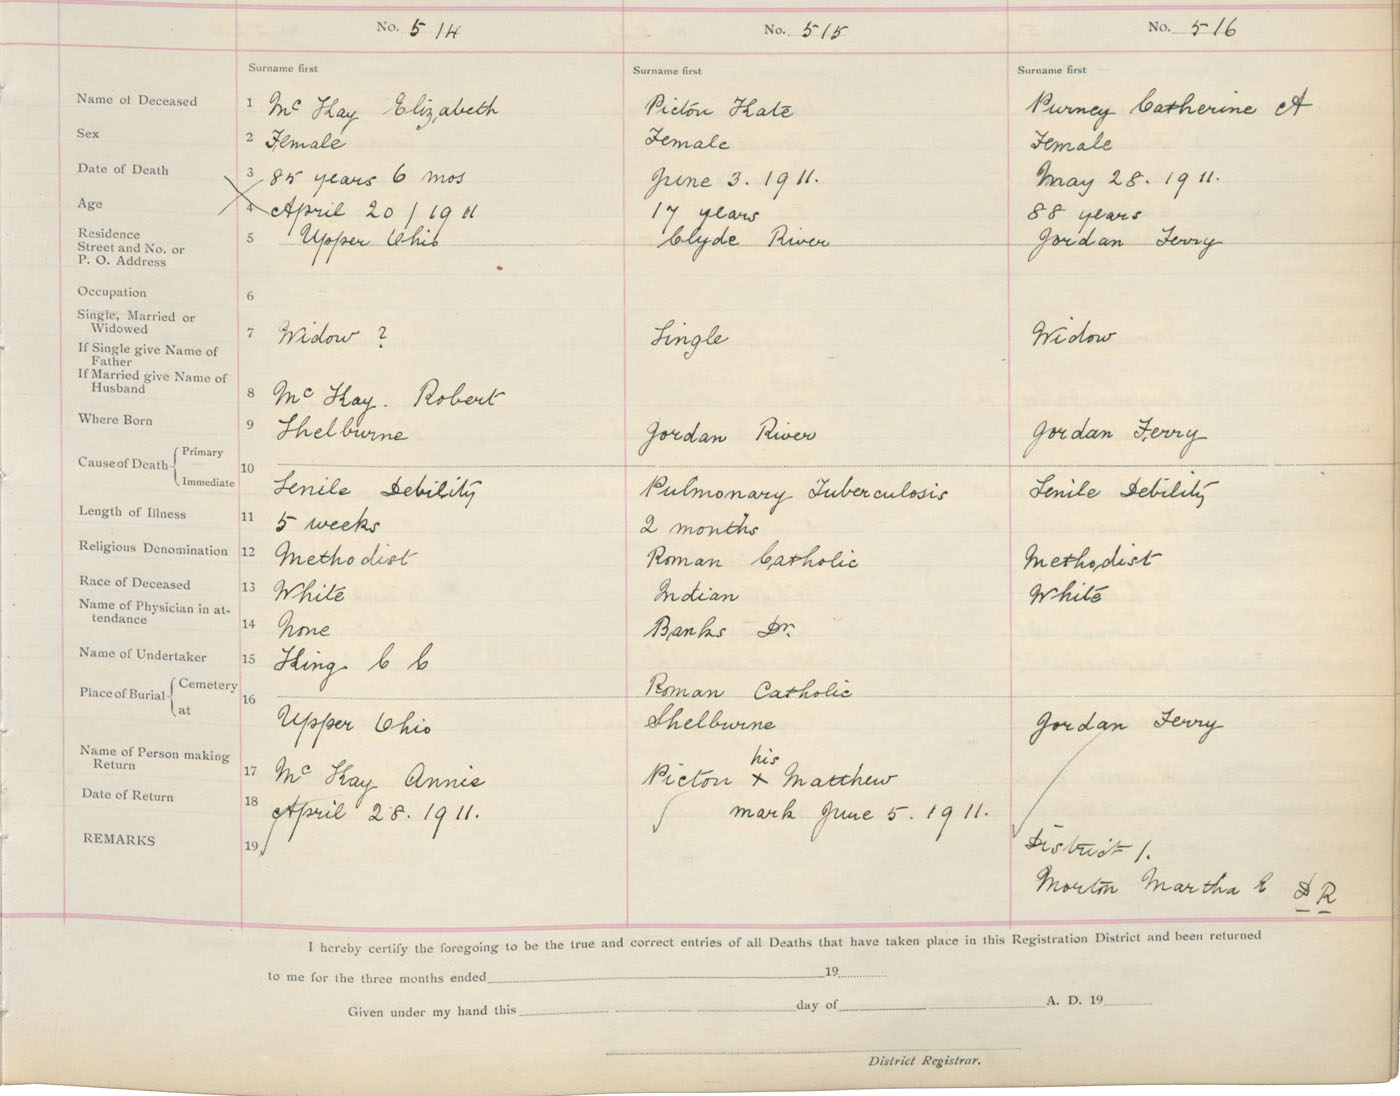 No. 514 No. 515 No. 516
Surname first Surname first Surname first
Name of Deceased 1 Mc Kay Elizabeth Picton Kate Purney Catherine A
Sex 2 Female Female Female
Date of Death 3 85 years 6 mos June 3. 1911. May 28. 1911.
Age 4 April 20 / 1911 17 years 88 years
Residence
Street and No. or
P. O. Address 5 Upper Ohio Clyde River Jordan Ferry
Occupation 6
Single, Married or
Widowed 7 Widow ? Single Widow
If Single give Name of
Father
If Married give Name of
Husband 8 Mc Kay. Robert
Where Born 9 Shelburne Jordan River Jordan Ferry
Cause of Death Primary
Immediate 10 Senile Debility Pulmonary Tuberculosis Senile Debility
Length of Illness 11 5 weeks 2 months
Religious Denomination 12 Methodist Roman Catholic Methodist
Race of Deceased 13 White Indian White
Name of Physician in at-
tendance 14 None Banks Dr.
Name of Undertaker 15 King C C
Place of Burial Cemetery 16 Roman Catholic
at Upper Ohio Shelburne Jordan Ferry
Name of Person making
Return 17 Mc Kay Annie Picton his x Matthew
Date of Return 18 April 28. 1911. mark June 5. 1911.
REMARKS 19 District 1.
Morton Martha E D R
I hereby certify the foregoing to be the true and correct entries of all Deaths that have taken place in this Registration District and been returned
to me for the three months ended 19
Given under my hand this day of A. D. 19
District Registrar.